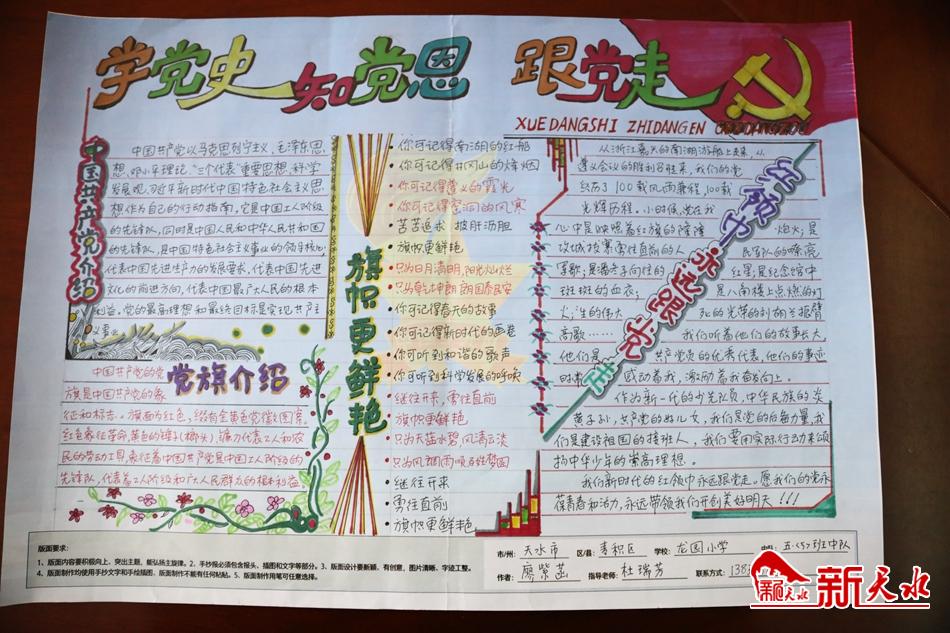 学党史 知党恩 跟党走
XUEDANGSHI ZHIDANGEN
中国共产党介绍
中国共产党以马克思列宁主义、毛泽东思
想、邓小平理论、"三个代表"重要思想、科学
发展观、习近平新时代中国特色社会主义思
想作为自己的行动指南,它是中国工人阶级
的先锋队,同时是中国人民和中华民族
的先锋队,是中国特色社会主义事业的领导核心,
代表中国先进生产力的发展要求,代表中国先进
文化的前进方向,代表中国最广大人民的根本
利益。党的最高理想和最终目标是实现共产主
义
党旗介绍
中国共产党的党
旗是中国共产党的象
征和标志。旗面为红色,缀有金黄色党徽图案。
红色象征革命,黄色的锤子(榔头)、镰刀代表工人和农
民的劳动工具,象征着中国共产党是中国工人阶级的
先锋队,代表着工人阶级和广大人民群众的根本利益。
旗帜更鲜艳
你可记得南湖的红船
你可记得井冈山的烽烟
你可记得遵义的霞光
你可记得窑洞的风寒
苦苦追求 披肝沥胆
旗帜更鲜艳
只为日月清明,阳光灿烂
只为乾坤朗朗国泰民安
你可记得春天的故事
你可记得新时代的画卷
你可听到和谐的歌声
你可听到科学发展的呼唤
继往开来,勇往直前
旗帜更鲜艳
只为天蓝水碧,风清云淡
只为风调雨顺百姓梦圆
继往开来
勇往直前
旗帜更鲜艳
红领巾 永远跟党走
从浙江嘉兴的南湖游船上走来,从
遵义会议的胜利召开走来,我们的党
经历了100载风雨兼程,100载
光辉历程。小时候,党在我
心中是映照着红旗的
炮火;是
攻城拔寨勇往直前的
嘹亮
军歌;是潘冬子向往的 红星;是纪念馆中
斑斑的血衣; 是八角楼上点燃的灯
火;生的伟大 死的光荣的刘胡兰振臂
高歌…… 我们听着他们的故事长大,
他们是 共产党员的优秀代表,他们的事迹
时 感动着我,激励着我奋发向上。
作为新一代的少先队员,中华民族的炎
黄子孙,共产党的好儿女,我们是党的后备力量,我
们是建设祖国的接班人,我们要用实际行动来颂
扬中华少年的崇高理想。
我们新时代的红领巾永远跟党走。愿我们的党永
葆青春和活力,永远带领我们开创美好明天!!!
版面要求:
1、版面内容要积极向上、突出主题,能弘扬主旋律。2、手抄报必须包含报头、插图和文字等部分。3、版面设计要新颖、有创意、图片清晰、字迹工整。
4、版面制作均使用手抄文字和手绘插图,版面制作不能有任何粘贴。5、版面制作用笔可任意选择。
市/州: 天水市 区/县: 麦积区 学校: 龙园小学 中队: 五<5>班中队
作者: 廖紫菡 指导老师: 杜瑞芳 联系方式: 138
新天水